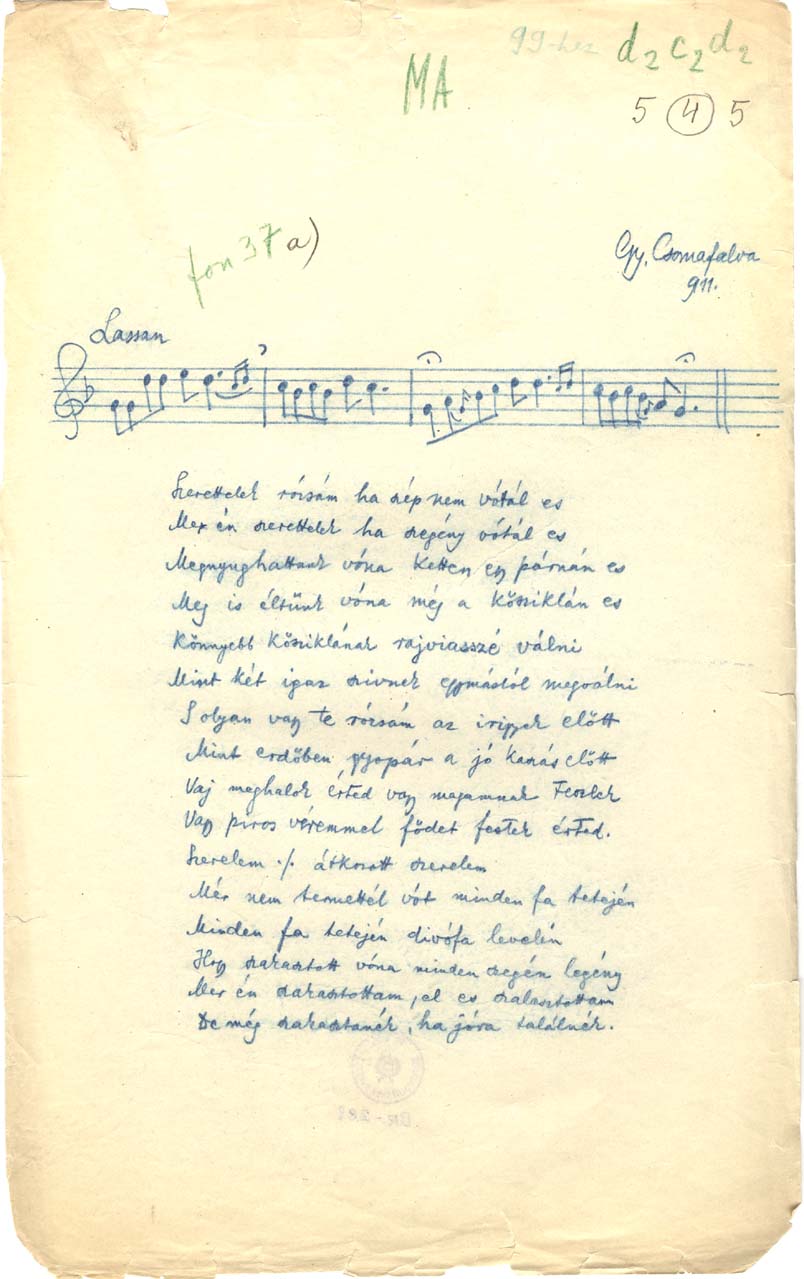 99-hez d2 c2 d2
MA
5 4 5
fon 37 a)
Gy. Csomafalva
911.
Lassan
Szerettelek rózsám ha szép nem vótál es
Mer én szerettelek ha szegény vótál es
Megnyughattunk vóna ketten egy párnán es
Meg is éltünk vóna még a kősziklán es
Könnyebb kősziklának rajviasszé válni
Mint két igaz szivnek egymástól megválni
S olyan vagy te rózsám az irigyek előtt
Mint erdőben gyopár a jó kanás előtt
Vaj meghalok érted vagy magamnak teszlek
Vagy piros véremmel födet festek érted.
Szerelem ./. átkozott szerelem
Mér nem termettél vót minden fa tetején
Minden fa tetején diófa levelén
Hogy szakasztott vóna minden szegén legény
Mer én szakasztottam, el es szalasztottam
De még szakasztanék, ha jóra találnék.